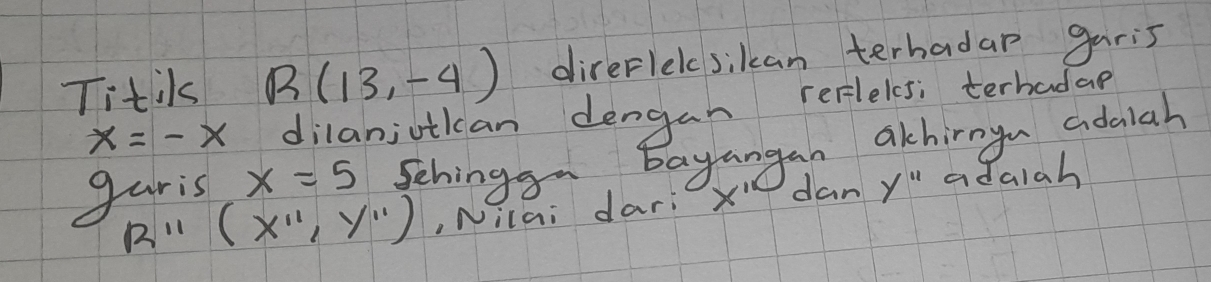 Titik R(13,-4) direfleksikan terhadap garis
x = -x dilanjutkan dengan refleksi terhadap
garis x = 5 Sehingga Bayangan akhirnya adalah
R" (x", y"), Nilai dari x" dan y" adalah